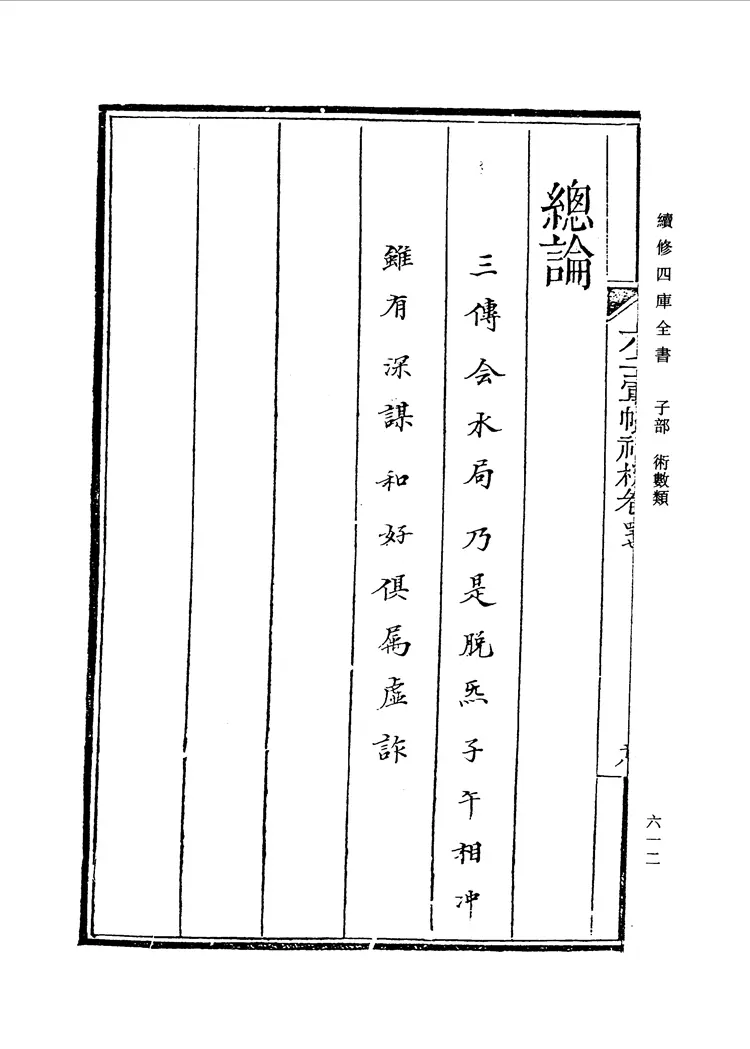 續修四庫全書 子部 術數類
六一二
總論
三傳会水局乃是脫炁子午相冲
雖有深謀和好俱属虛詐